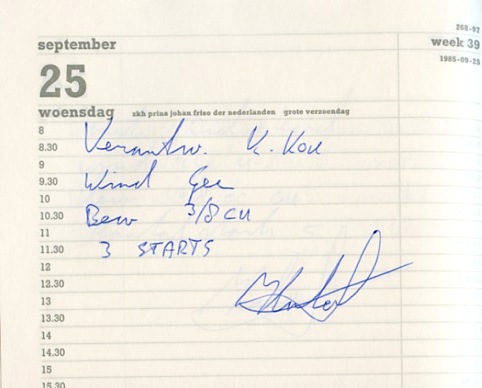 268-97
september week 39
25 1985-09-25
woensdag zkh prins johan friso der nederlanden grote verzoendag
8
8.30 Verantw. K. Kou
9
9.30 Wind Gee
10
10.30 Bew 3/8 cu
11
11.30 3 STARTS
12
12.30
13
13.30
14
14.30
15
15.30